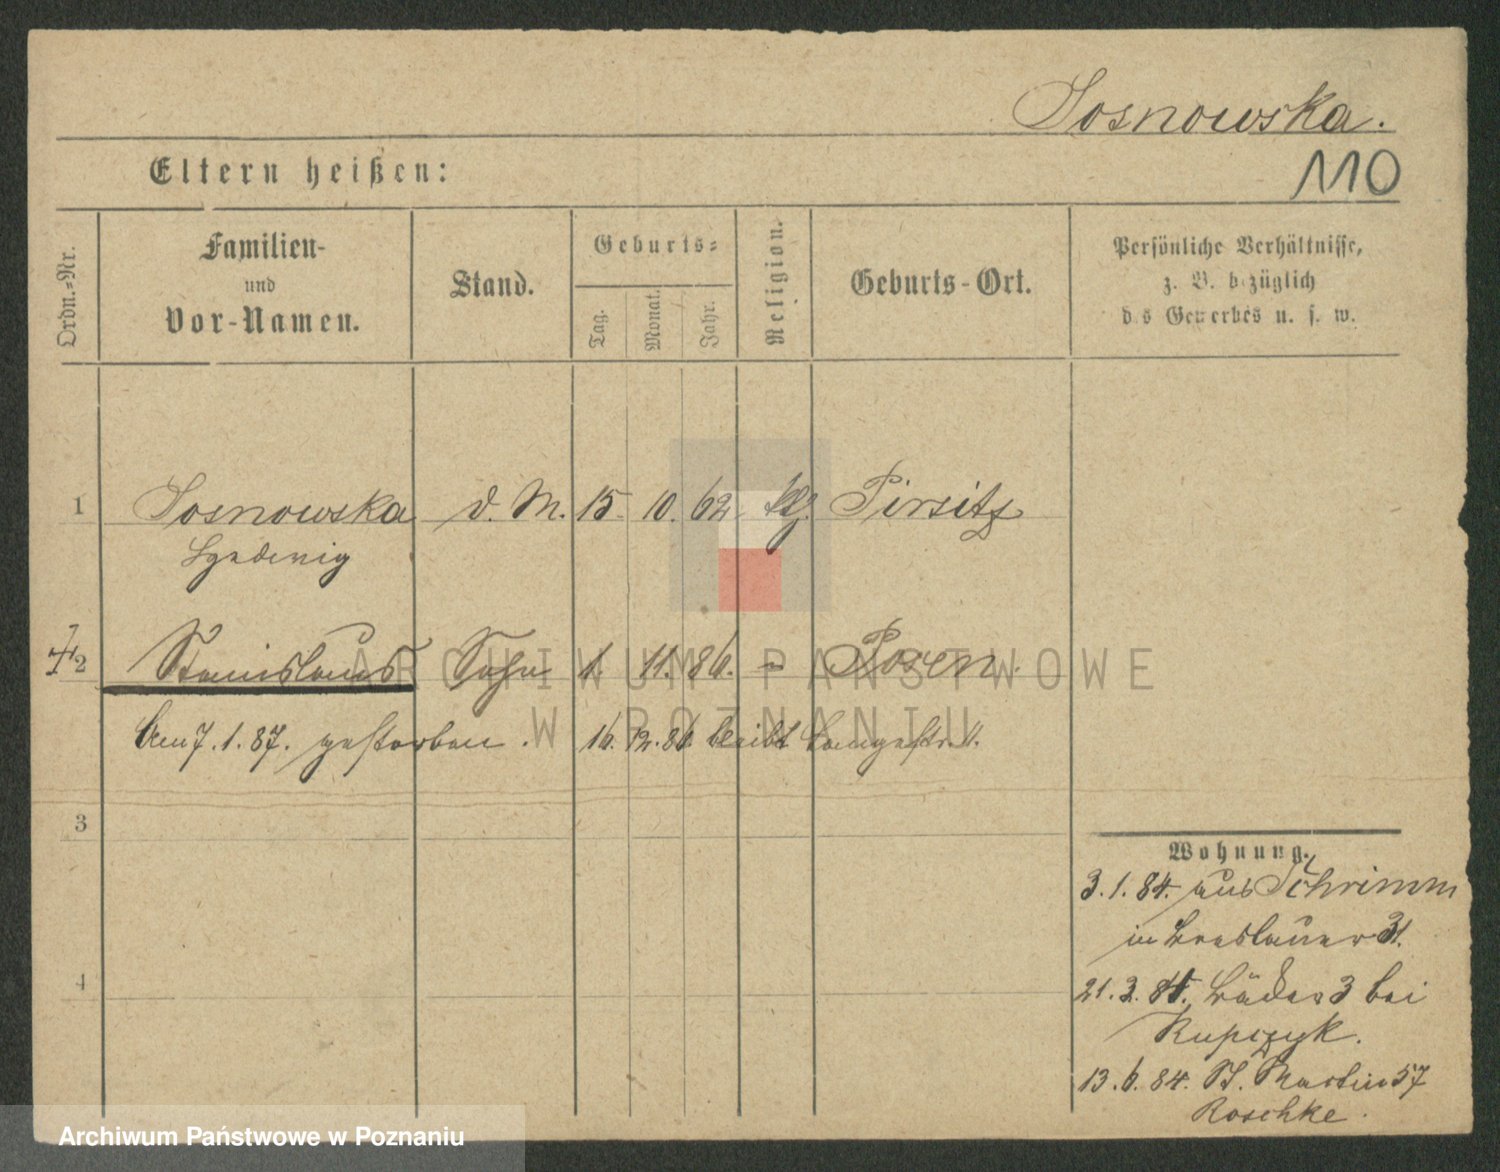 Sosnowska.
110
Eltern heißen:
Ordn.-Nr.
Familien-
und
Vor-Namen.
Stand.
Geburts-
Tag.
Monat.
Jahr.
Religion.
Geburts-Ort.
Persönliche Verhältnisse,
z. B. bezüglich
des Gewerbes u. s. w.
1 Sosnowska d. M. 15 10. 62 Pirsitz
Hedwig
2 Stanislaus Sohn 1. 11. 86. - Posen.
Am 7. 1. 87. gestorben. 16. 12. 86 bleibt
3
4
Wohnung.
3. 1. 84. aus Schrimm
in Breslauer 31.
21. 3. 84. Bäcker 3 bei
Rupczyk.
13. 6. 84. St. Martin 57
Roschke.
ARCHIWUM PAŃSTWOWE
W POZNANIU
Archiwum Państwowe w Poznaniu